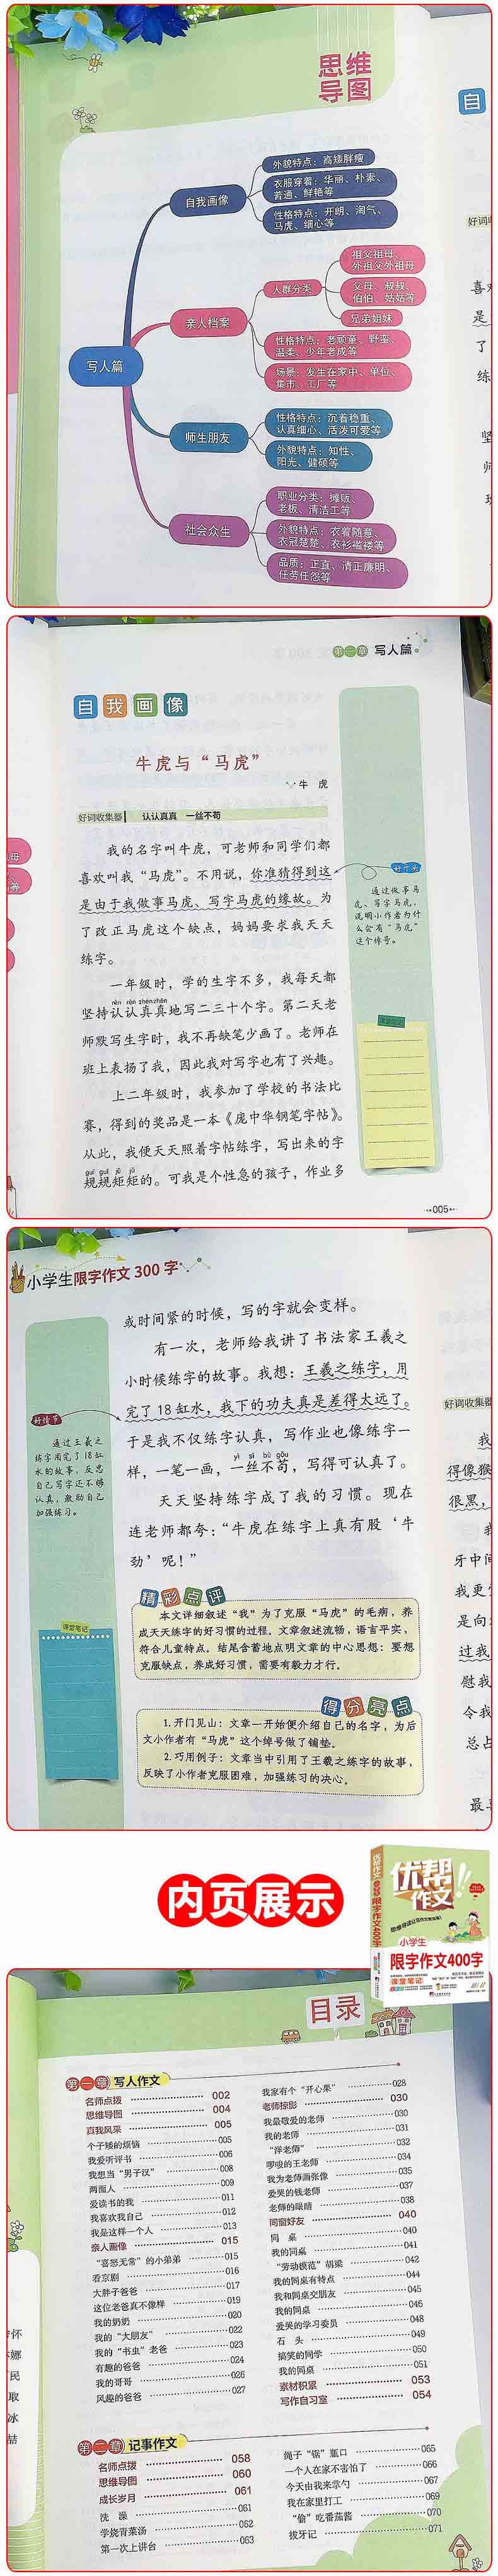 思维
导图
自
写人篇
自我画像
外貌特点：高矮胖瘦
衣服穿着：华丽、朴素、
普通、鲜艳等
性格特点：开朗、淘气、
马虎、细心等
亲人档案
人群分类
祖父祖母、
外祖父外祖母
父母、叔叔、
伯伯、姑姑等
兄弟姐妹
性格特点：老顽童、野蛮、
温柔、少年老成等
场景：发生在家中、单位、
集市、工厂等
师生朋友
性格特点：沉着稳重、
认真细心、活泼可爱等
外貌特点：知性、
阳光、健硕等
社会众生
职业分类：摊贩、
老板、清洁工等
外貌特点：衣着随意、
衣冠楚楚、衣衫褴褛等
品质：正直、清正廉明、
任劳任怨等
好词
喜
是
了
练
第一章 写人篇
自我画像
牛虎与“马虎”
牛 虎
好词收集器 认认真真 一丝不苟
我的名字叫牛虎，可老师和同学们都
喜欢叫我“马虎”。不用说，你准猜得到这
是由于我做事马虎、写字马虎的缘故。为
了改正马虎这个缺点，妈妈要求我天天
练字。
一年级时，学的生字不多，我每天都
rèn rèn zhēn zhēn
坚持认认真真地写二三十个字。第二天老
师默写生字时，我不再缺笔少画了。老师在
班上表扬了我，因此我对写字也有了兴趣。
上二年级时，我参加了学校的书法比
赛，得到的奖品是一本《庞中华钢笔字帖》。
从此，我便天天照着字帖练字，写出来的字
guī guī jǔ jǔ
规规矩矩的。可我是个性急的孩子，作业多
好开头
通过做事马
虎、写字马虎，
说明小作者为什
么会有“马虎”
这个绰号。
课堂笔记
005
小学生限字作文300字
或时间紧的时候，写的字就会变样。
有一次，老师给我讲了书法家王羲之
小时候练字的故事。我想：王羲之练字，用
完了18缸水，我下的功夫真是差得太远了。
于是我不仅练字认真，写作业也像练字一
yì sī bù gǒu
样，一笔一画，一丝不苟，写得可认真了。
天天坚持练字成了我的习惯。现在
连老师都夸：“牛虎在练字上真有股‘牛
劲’呢！”
好情节
通过王羲之
练字用完了18缸
水的故事，反思
自己写字还不够
认真，激励自己
加强练习。
课堂笔记
精彩点评
本文详细叙述“我”为了克服“马虎”的毛病，养
成天天练字的好习惯的过程。文章叙述流畅，语言平实，
符合儿童特点。结尾含蓄地点明文章的中心思想：要想
克服缺点，养成好习惯，需要有毅力才行。
得分亮点
1.开门见山：文章一开始便介绍自己的名字，为后
文小作者有“马虎”这个绰号做了铺垫。
2.巧用例子：文章当中引用了王羲之练字的故事，
反映了小作者克服困难，加强练习的决心。
好词收集器
我
得像猴
很黑，
牙中间
我更
是向
过我
慰我
令我
总占
最
内页展示
优帮
作文
小学生
限字作文400字
课堂笔记
目录
第一章 写人作文
名师点拨 002
思维导图 004
真我风采 005
个子矮的烦恼 005
我爱听评书 006
我想当“男子汉” 008
两面人 009
爱读书的我 011
我喜欢我自己 012
我是这样一个人 013
亲人画像 015
“喜怒无常”的小弟弟 015
看京剧 016
大胖子爸爸 017
这位老爸真不像样 019
我的奶奶 020
我的“大朋友” 022
我的“书虫”老爸 023
有趣的爸爸 024
我的哥哥 026
风趣的爸爸 027
我家有个“开心果” 028
老师掠影 030
我最敬爱的老师 030
我的老师 031
“洋老师” 032
啰唆的王老师 034
我为老师画张像 035
爱哭的钱老师 037
老师的眼睛 038
同窗好友 040
同 桌 040
我的同桌 041
“劳动模范”胡梁 042
我的同桌有特点 044
我和同桌交朋友 045
我的同桌 046
爱哭的学习委员 048
石 头 049
搞笑的同学 050
我的同桌 051
素材积累 053
写作自习室 054
第二章 记事作文
名师点拨 058
思维导图 060
成长岁月 061
洗 澡 061
学烧青菜汤 062
第一次上讲台 063
绳子“锯”瓶口 065
一个人在家不害怕了 066
今天由我来掌勺 067
我在家里打工 069
“偷”吃番茄酱 070
拔牙记 071